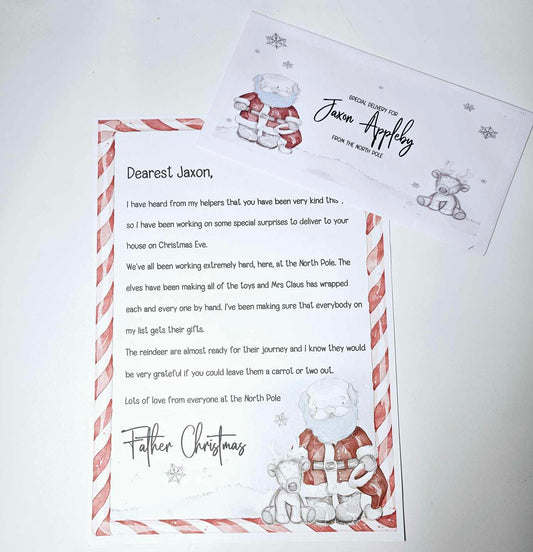 SPECIAL DELIVERY FOR
Jaxon Appleby
FROM THE NORTH POLE
Dearest Jaxon,
I have heard from my helpers that you have been very kind
so I have been working on some special surprises to deliver to your
house on Christmas Eve.
We've all been working extremely hard, here, at the North Pole. The
elves have been making all of the toys and Mrs Claus has wrapped
each and every one by hand. I've been making sure that everybody on
my list gets their gifts.
The reindeer are almost ready for their journey and I know they would
be very grateful if you could leave them a carrot or two out.
Lots of love from everyone at the North Pole
Father Christmas